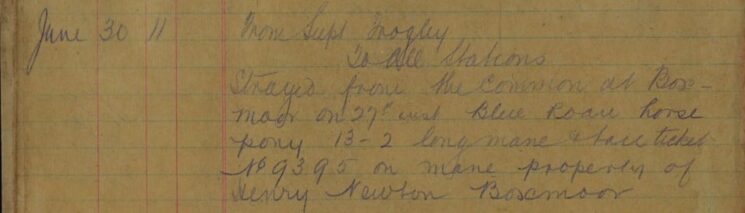 June 30 11 From Supt Frogley
To All Stations
Strayed from the Common at Box-
moor on 27th inst Blue Roan horse
pony 13-2 long mane & tail ticket
No 9395 on mane property of
Henry Newton Boxmoor